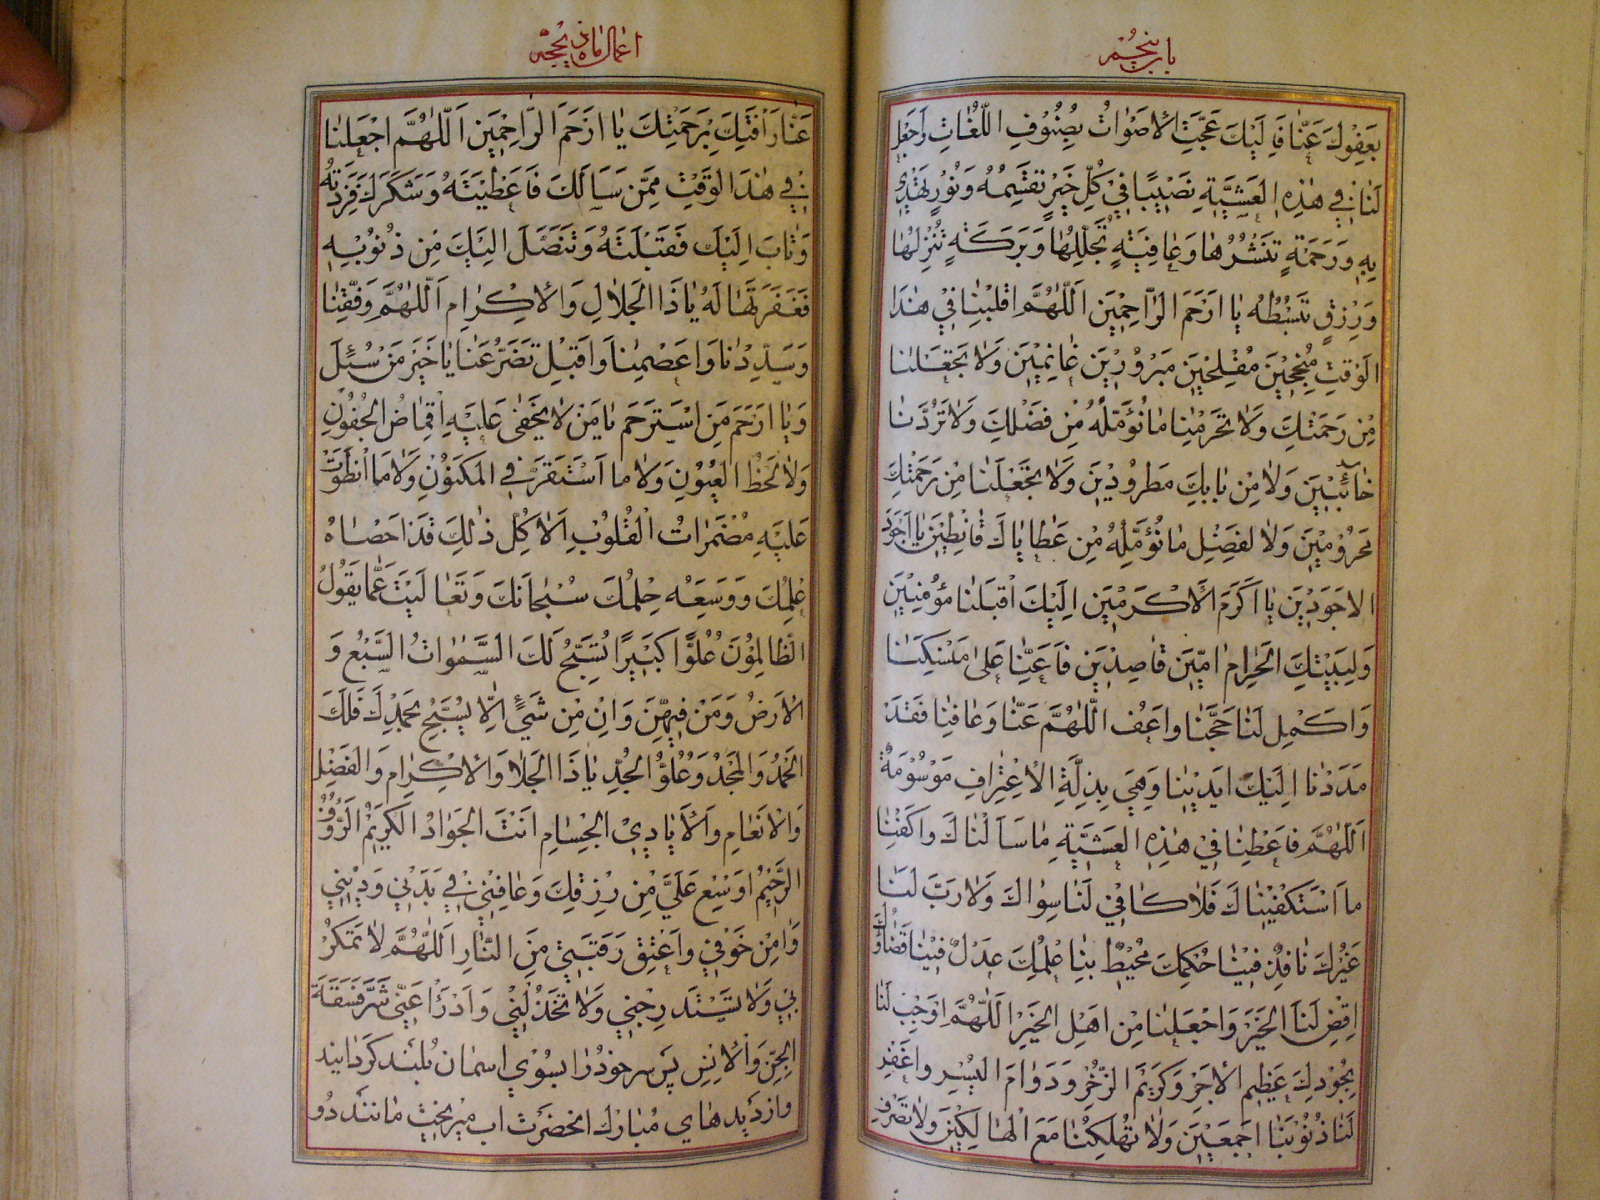 باب پنجم
بِعَفْوِكَ عَنَّا فَاِلَيْكَ عَجَّتِ الْاَصْوَاتُ بِصُنُوْفِ اللُّغَاتِ وَاجْعَلْ
لَنَا فِيْ هٰذِهِ الْعَشِيَّةِ نَصِيْبًا فِيْ كُلِّ خَيْرٍ تَقْسِمُهُ وَنُوْرٍ تَهْدِيْ
بِهِ وَرَحْمَةٍ تَنْشُرُهَا وَعَافِيَةٍ تُجَلِّلُهَا وَبَرَكَةٍ تُنْزِلُهَا
وَرِزْقٍ تَبْسُطُهُ يَا اَرْحَمَ الرَّاحِمِيْنَ اَللّٰهُمَّ اقْلِبْنَا فِيْ هٰذَا
الْوَقْتِ مُنْجِحِيْنَ مُفْلِحِيْنَ مَبْرُوْرِيْنَ غَانِمِيْنَ وَلَا تَجْعَلْنَا
مِنْ رَحْمَتِكَ وَلَا تَحْرِمْنَا مَا نُؤَمِّلُهُ مِنْ فَضْلِكَ وَلَا تَرُدَّنَا
خَائِبِيْنَ وَلَا مِنْ بَابِكَ مَطْرُوْدِيْنَ وَلَا تَجْعَلْنَا مِنْ رَحْمَتِكَ
مَحْرُوْمِيْنَ وَلَا لِفَضْلِ مَا نُؤَمِّلُهُ مِنْ عَطَايَاكَ قَانِطِيْنَ يَا اَجْوَدَ
الْاَجْوَدِيْنَ يَا اَكْرَمَ الْاَكْرَمِيْنَ اِلَيْكَ اَقْبَلْنَا مُؤْمِنِيْنَ
وَلِبَيْتِكَ الْحَرَامِ اٰمِّيْنَ قَاصِدِيْنَ فَاَعِنَّا عَلىٰ مَنْسَكِنَا
وَاَكْمِلْ لَنَا حَجَّنَا وَاعْفُ اللّٰهُمَّ عَنَّا وَعَافِنَا فَقَدْ
مَدَدْنَا اِلَيْكَ اَيْدِيَنَا وَهِيَ بِذِلَّةِ الْاِعْتِرَافِ مَوْسُوْمَةٌ
اَللّٰهُمَّ فَاَعْطِنَا فِيْ هٰذِهِ الْعَشِيَّةِ مَا سَاَلْنَاكَ وَاكْفِنَا
مَا اسْتَكْفَيْنَاكَ فَلَا كَافِيْ لَنَا سِوَاكَ وَلَا رَبَّ لَنَا
غَيْرُكَ نَافِذٌ فِيْنَا حُكْمُكَ مُحِيْطٌ بِنَا عِلْمُكَ عَدْلٌ فِيْنَا قَضَاؤُكَ
اِقْضِ لَنَا الْخَيْرَ وَاجْعَلْنَا مِنْ اَهْلِ الْخَيْرِ اَللّٰهُمَّ اَوْجِبْ لَنَا
بِجُوْدِكَ عَظِيْمَ الْاَجْرِ وَكَرِيْمَ الذُّخْرِ وَدَوَامَ الْيُسْرِ وَاغْفِرْ
لَنَا ذُنُوْبَنَا اَجْمَعِيْنَ وَلَا تُهْلِكْنَا مَعَ الْهَالِكِيْنَ وَلَا تَصْرِفْ
اعمال ماه ذیحجّه
عَنَّا رَاْفَتَكَ بِرَحْمَتِكَ يَا اَرْحَمَ الرَّاحِمِيْنَ اَللّٰهُمَّ اجْعَلْنَا
فِيْ هٰذَا الْوَقْتِ مِمَّنْ سَاَلَكَ فَاَعْطَيْتَهُ وَشَكَرَكَ فَزِدْتَهُ
وَتَابَ اِلَيْكَ فَقَبِلْتَهُ وَتَنَصَّلَ اِلَيْكَ مِنْ ذُنُوْبِهِ
فَغَفَرْتَهَا لَهُ يَا ذَا الْجَلَالِ وَالْاِكْرَامِ اَللّٰهُمَّ وَفِّقْنَا
وَسَدِّدْنَا وَاعْصِمْنَا وَاقْبَلْ تَضَرُّعَنَا يَا خَيْرَ مَنْ سُئِلَ
وَيَا اَرْحَمَ مَنِ اسْتُرْحِمَ يَا مَنْ لَا يَخْفىٰ عَلَيْهِ اِغْمَاضُ الْجُفُوْنِ
وَلَا لَحْظُ الْعُيُوْنِ وَلَا مَا اسْتَقَرَّ فِي الْمَكْنُوْنِ وَلَا مَا انْطَوَتْ
عَلَيْهِ مُضْمَرَاتُ الْقُلُوْبِ اَلَا كُلُّ ذٰلِكَ قَدْ اَحْصَاهُ
عِلْمُكَ وَوَسِعَهُ حِلْمُكَ سُبْحَانَكَ وَتَعَالَيْتَ عَمَّا يَقُوْلُ
الظَّالِمُوْنَ عُلُوًّا كَبِيْرًا تُسَبِّحُ لَكَ السَّمٰوَاتُ السَّبْعُ وَ
الْاَرْضُ وَمَنْ فِيْهِنَّ وَاِنْ مِنْ شَيْءٍ اِلَّا يُسَبِّحُ بِحَمْدِكَ فَلَكَ
الْحَمْدُ وَالْمَجْدُ وَعُلُوُّ الْجَدِّ يَا ذَا الْجَلَا وَالْاِكْرَامِ وَالْفَضْلِ
وَالْاِنْعَامِ وَالْاَيَادِي الْجِسَامِ اَنْتَ الْجَوَادُ الْكَرِيْمُ الرَّؤُفُ
الرَّحِيْمُ اَوْسِعْ عَلَيَّ مِنْ رِزْقِكَ وَعَافِنِيْ فِيْ بَدَنِيْ وَدِيْنِيْ
وَاٰمِنْ خَوْفِيْ وَاَعْتِقْ رَقَبَتِيْ مِنَ النَّارِ اَللّٰهُمَّ لَا تَمْكُرْ
بِيْ وَلَا تَسْتَدْرِجْنِيْ وَلَا تَخْذُلْنِيْ وَادْرَاْ عَنِّيْ شَرَّ فَسَقَةِ
الْجِنِّ وَالْاِنْسِ پس سر خود را بسوی اسمان بلند کردانید
و از دیدهای مبارک انحضرت اب میریخت مانند دو